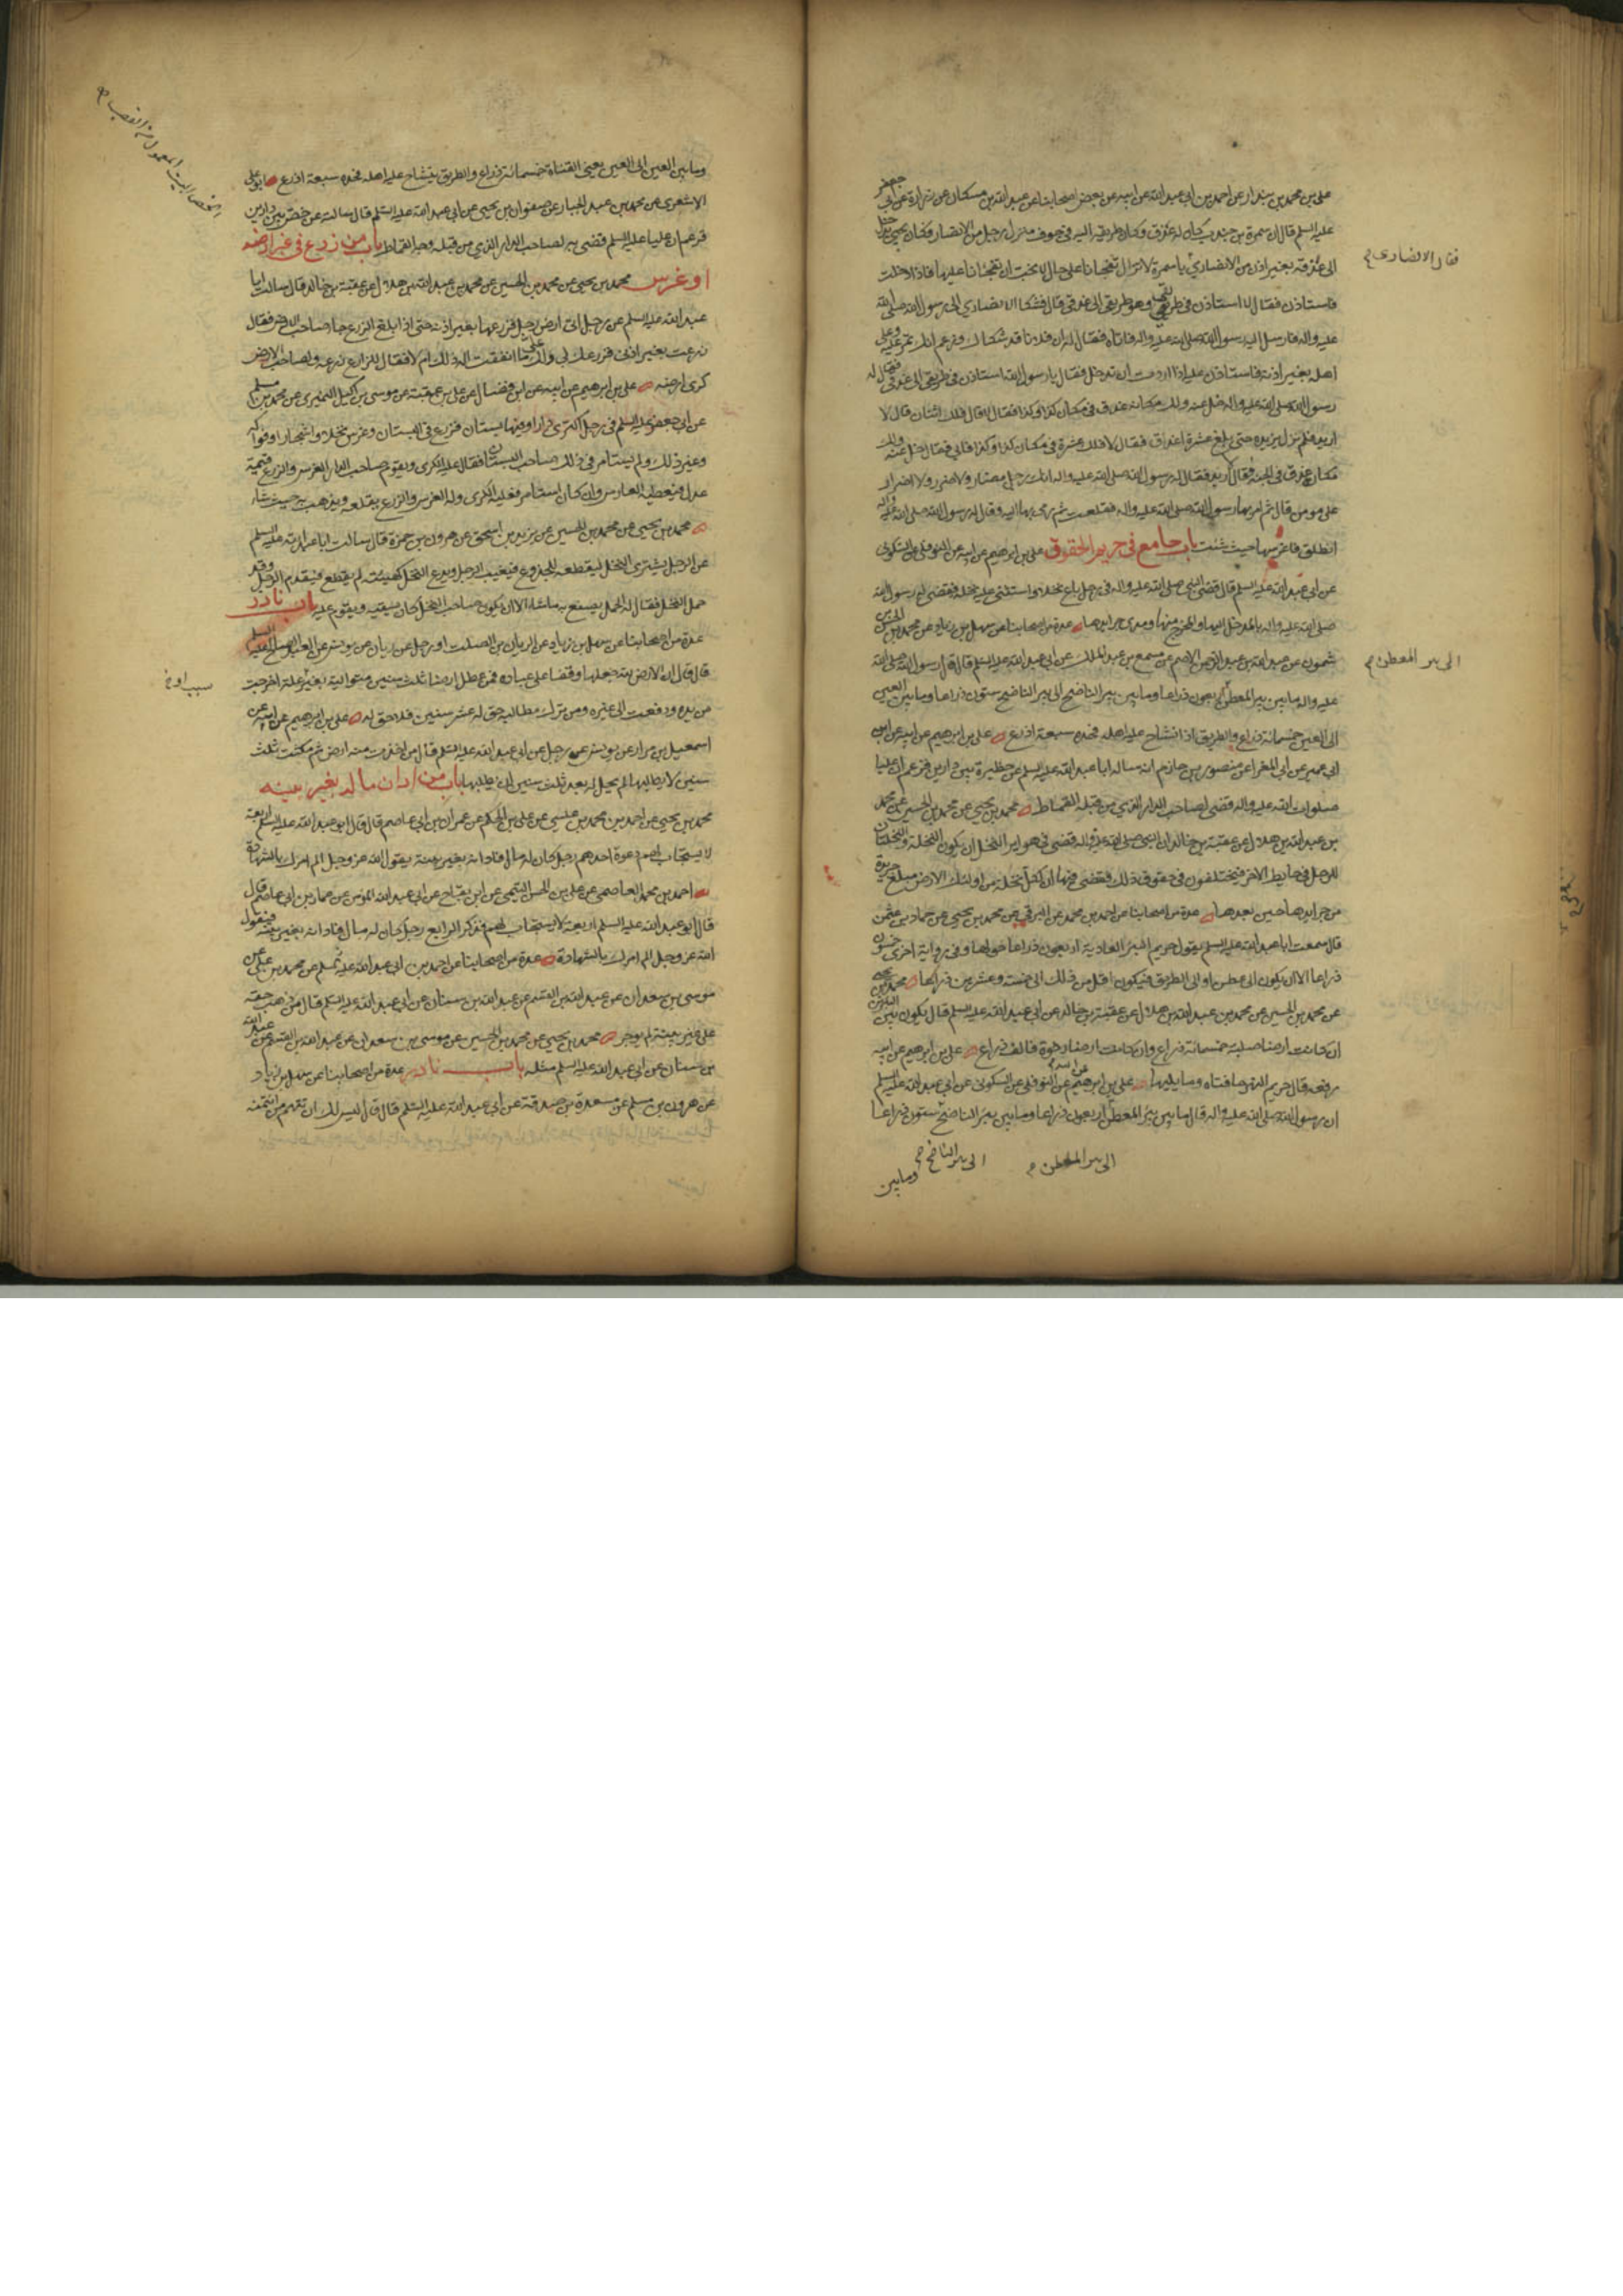 علي بن محمد بن بندار عن احمد بن ابي عبد الله عن ابيه عن بعض اصحابنا عن عبد الله بن مسكان عن زرارة عن ابي جعفر
عليه السلم قال ان سمرة بن جندب كان له عذق وكان طريقه اليه في جوف منزل رجل من الانصار فكان يجيء يدخل
الى عذقه بغير اذن من الانصاري يا سمرة لا تزال تفجانا على حال لا نحب ان تفجئنا عليها فاذا دخلت
فقال الانصاري
فاستاذن فقال لا استاذن في طريقي وهو طريقي الى عذقي قال فشكا الانصاري الى رسول الله صلى الله
عليه واله فارسل اليه رسول الله صلى الله عليه واله فاتاه فقال له ان فلانا قد شكاك وزعم انك تمر عليه وعلى
اهله بغير اذنه فاستاذن عليه اذا اردت ان تدخل فقال يا رسول الله استاذن في طريقي الى عذقي فقال له
رسول الله صلى الله عليه واله خل عنه ولك مكانه عذق في مكان كذا وكذا فقال لا قال فلك اثنان قال لا
اريد فلم يزل يزيده حتى بلغ عشرة اعذاق فقال لا فلك عشرة في مكان كذا وكذا فابى فقال خل عنه ولك
مكانه عذق في الجنة فقال لا اريد فقال له رسول الله صلى الله عليه واله انك رجل مضار ولا ضرر ولا اضرار
على مومن قال ثم امر بها رسول الله صلى الله عليه واله فقلعت ثم رمى بها اليه وقال له رسول الله صلى الله عليه واله
انطلق فاغرسها حيث شئت باب جامع في حريم الحقوق علي بن ابرهيم عن ابيه عن النوفلي عن السكوني
عن ابي عبد الله عليه السلم قال قضى النبي صلى الله عليه واله في رجل باع نخلا واستثنى عليه نخلة فقضى له رسول الله
صلى الله عليه واله بالمدخل اليها والمخرج منها ومدى جرايدها عدة من اصحابنا عن سهل بن زياد عن محمد بن الحسن بن
شمون عن عبد الله بن عبد الرحمن الاصم عن مسمع بن عبد الملك عن ابي عبد الله عليه السلم قال قال رسول الله صلى الله
الى بير المعطن
عليه واله ما بين بير المعطن اربعون ذراعا وما بين بير الناضح الى بير الناضح ستون ذراعا وما بين العين
الى العين خمسمائة ذراع والطريق اذا تشاح عليه اهله فحده سبعة اذرع علي بن ابرهيم عن ابيه عن ابن
ابي عمير عن ابي المغرا عن منصور بن حازم انه سال ابا عبد الله عليه السلم عن حظيرة بين دارين فزعم ان عليا
صلوات الله عليه واله قضى لصاحب الدار الذي من قبله القماط محمد بن يحيى عن محمد بن الحسين عن محمد
بن عبد الله بن هلال عن عقبة بن خالد ان النبي صلى الله عليه واله قضى في هواير النخل ان يكون النخلة والنخلتان
للرجل في حايط الاخر فيختلفون في حقوق ذلك فقضى فيها ان لكل نخلة من اولئك الارض مبلغ جريدة
من جرايدها حين بعدها عدة من اصحابنا عن احمد بن محمد عن البرقي عن محمد بن يحيى عن حماد بن عثمن
قال سمعت ابا عبد الله عليه السلم يقول حريم البئر العادية اربعون ذراعا حولها وفي رواية اخرى خمسون
ذراعا الا ان يكون الى عطن او الى الطريق فيكون اقل من ذلك الى خمسة وعشرين ذراعا محمد بن يحيى
عن محمد بن الحسين عن محمد بن عبد الله بن هلال عن عقبة بن خالد عن ابي عبد الله عليه السلم قال يكون بين البئرين
ان كانت ارضا صلبة خمسمائة ذراع وان كانت ارضا رخوة فالف ذراع علي بن ابرهيم عن ابيه
رفعه قال حريم النهر حافتاه وما يليها علي بن ابرهيم عن ابيه عن النوفلي عن السكوني عن ابي عبد الله عليه السلم
ان رسول الله صلى الله عليه واله قال ما بين بئر المعطن اربعون ذراعا وما بين بئر الناضح ستون ذراعا
الى بير المعطن الى بير الناضح
وما بين
وما بين العين الى العين يعني القناة خمسمائة ذراع والطريق يتشاح عليه اهله فحده سبعة اذرع ابو علي
الاشعري عن محمد بن عبد الجبار عن صفوان بن يحيى عن ابي عبد الله عليه السلم قال سالته عن خص بين دارين
فزعم ان عليا عليه السلم قضى به لصاحب الدار الذي من قبله وجه القماط باب من زرع في غير ارضه
او غرس محمد بن يحيى عن محمد بن الحسين عن محمد بن عبد الله بن هلال عن عقبة بن خالد قال سالت ابا
عبد الله عليه السلم عن رجل اتى ارض رجل فزرعها بغير اذنه حتى اذا بلغ الزرع جاء صاحب الارض فقال
زرعت بغير اذني فزرعك لي ولك علي ما انفقت اله ذلك ام لا فقال للزارع زرعه ولصاحب الارض
كرى ارضه علي بن ابرهيم عن ابيه عن ابن فضال عن علي بن عقبة عن موسى بن اكيل النميري عن محمد بن مسلم
عن ابي جعفر عليه السلم في رجل اكترى دارا وفيها بستان فزرع في البستان وغرس نخلا واشجارا وفواكه
وغير ذلك ولم يستامر في ذلك صاحب البستان فقال عليه الكرى ويقوم صاحب الدار الغرس والزرع قيمة
عدل فيعطيه الغارس وان كان استامر فعليه الكرى وله الغرس والزرع يقلعه ويذهب به حيث شاء
محمد بن يحيى عن محمد بن الحسين عن يزيد بن اسحق عن هرون بن حمزة قال سالت ابا عبد الله عليه السلم
عن الرجل يشتري النخل ليقطعه للجذوع فيغيب الرجل ويدع النخل كهيئته لم يقطع فيقدم الرجل وقد
حمل النخل فقال له الحمل يصنع به ما شاء الا ان يكون صاحب النخل كان يسقيه ويقوم عليه باب نادر
عدة من اصحابنا عن سهل بن زياد عن الريان بن الصلت او رجل عن ريان عن يونس عن العبد الصالح عليه السلم
قال قال ان الارض لله جعلها وقفا على عباده فمن عطل ارضا ثلث سنين متوالية بغير علة اخرجت
من يده ودفعت الى غيره ومن ترك مطالبة حق له عشر سنين فلا حق له علي بن ابرهيم عن ابيه عن
اسمعيل بن مرار عن يونس عن رجل عن ابي عبد الله عليه السلم قال من اخذت منه ارض ثم مكث ثلث
سنين لا يطلبها لم يحل له بعد ثلث سنين ان يطلبها باب من ادان ماله بغير بينه
محمد بن يحيى عن احمد بن محمد بن عيسى عن علي بن الحكم عن عمران بن ابي عاصم قال قال ابو عبد الله عليه السلم اربعة
لا يستجاب لهم دعوة احدهم رجل كان له مال فادانه بغير بينة يقول الله عز وجل الم امرك بالشهادة
احمد بن محمد العاصمي عن علي بن الحسن التيمي عن ابن بقاح عن ابي عبد الله المومن عن عمار بن ابي عاصم قال
قال ابو عبد الله عليه السلم اربعة لا يستجاب لهم فذكر الرابع رجل كان له مال فادانه بغير بينة فيقول
الله عز وجل الم امرك بالشهادة عدة من اصحابنا عن احمد بن ابي عبد الله عن محمد بن علي عن
موسى بن سعدان عن عبد الله بن القسم عن عبد الله بن سنان عن ابي عبد الله عليه السلم قال من ذهب حقه
على غير بينة لم يوجر محمد بن يحيى عن محمد بن الحسين عن موسى بن سعدان عن عبد الله بن القسم عن عبد الله
بن سنان عن ابي عبد الله عليه السلم مثله باب نادر عدة من اصحابنا عن سهل بن زياد
عن هرون بن مسلم عن مسعدة بن صدقة عن ابي عبد الله عليه السلم قال قال ليس لك ان تتهم من ائتمنته